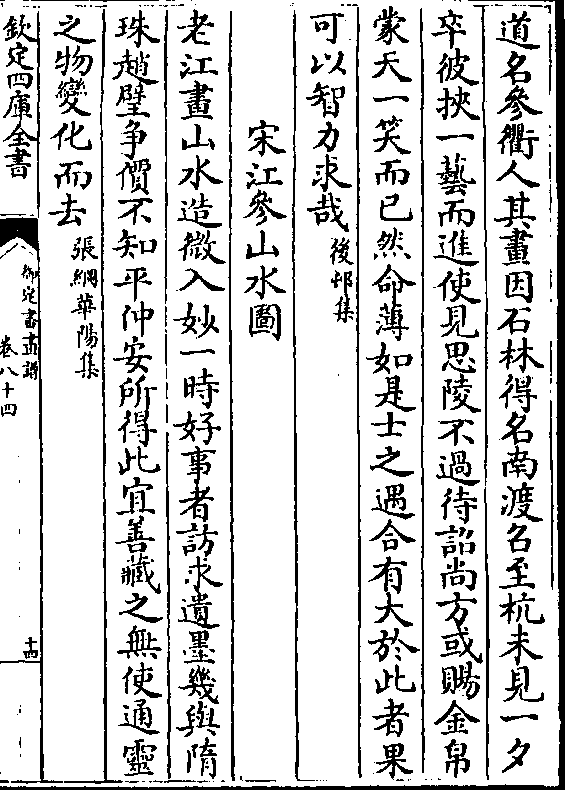 道名參衢人其畫因石林得名南渡召至杭未見一夕
卒彼挾一藝而進使見思陵不過待詔尚方或賜金帛
蒙天一笑而已然命薄如是士之遇合有大於此者果
可以智力求哉後邨集
宋江參山水圖
老江畫山水造微入妙一時好事者訪求遺墨幾與隋
珠趙璧争價不知平仲安所得此宜善藏之無使通靈
之物變化而去張綱華陽集
欽定四庫全書
御定書畫譜
卷八十四
十四